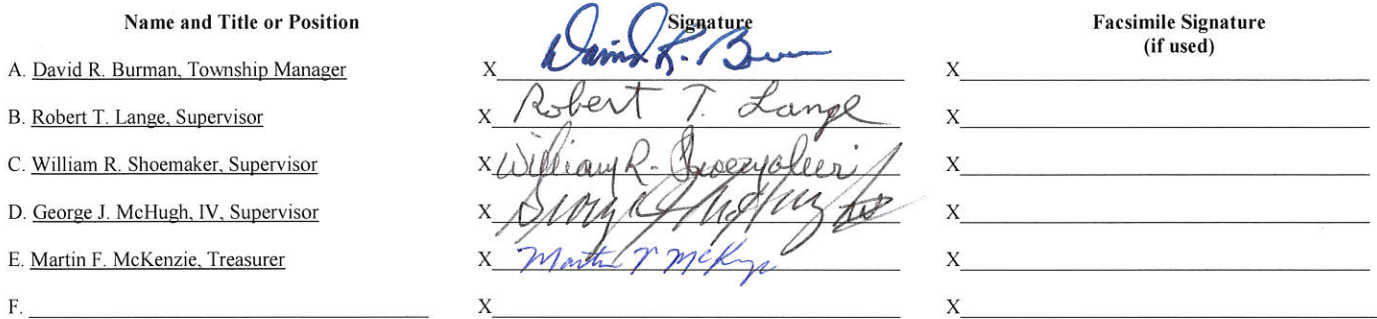 Name and Title or Position Signature Facsimile Signature
(if used)
A. David R. Burman, Township Manager X David R. Bu X
B. Robert T. Lange, Supervisor X Robert T. Lange X
C. William R. Shoemaker, Supervisor X William R. Shoemaker X
D. George J. McHugh, IV, Supervisor X George J McHugh IV X
E. Martin F. McKenzie, Treasurer X Martin F McKenzie X
F. X X